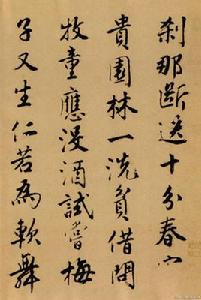 刹那斷送十分春富
貴園林一洗貧借問
牧童應没酒試嘗梅
子又生仁若為軟舞